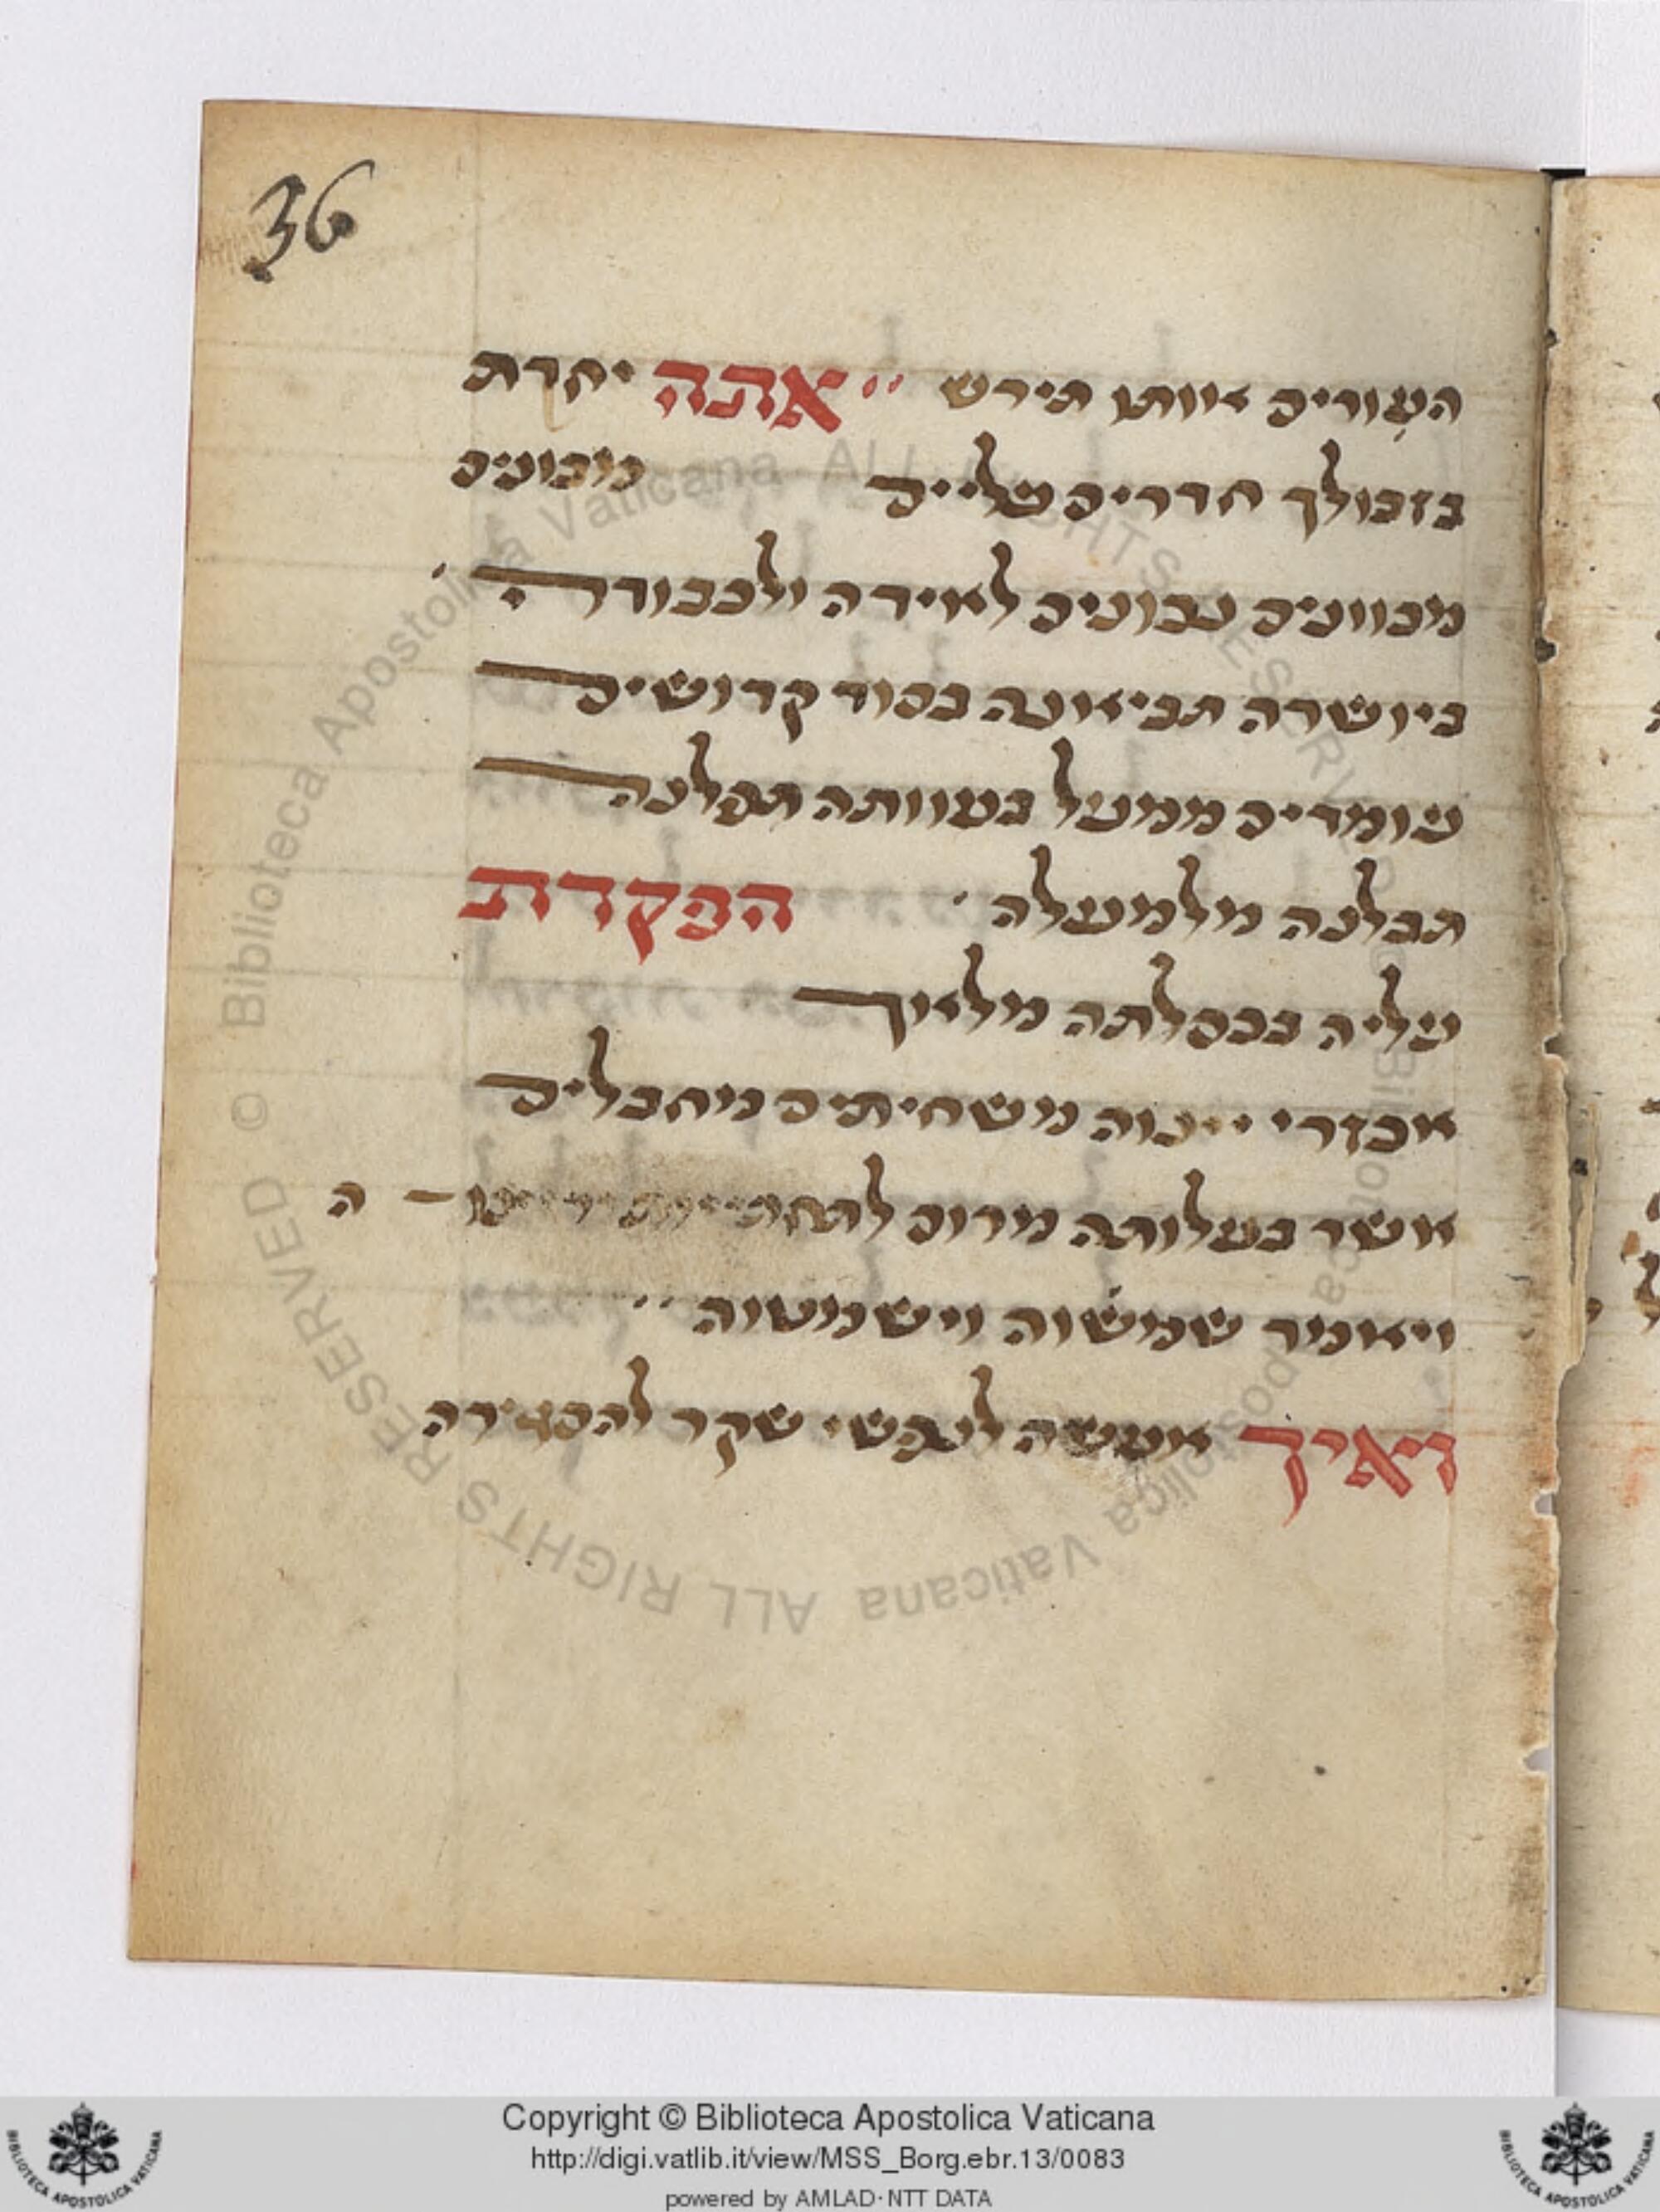 36
העורים אותו תירש ״ אתה יחדת
בזבולך חדרים מליים מכונים
מכוונים נבונים לאידה ולכבודה
ביושרה תביאונה בסוד קדושים
עומדים ממעל בעוותה תפלנה
תפלנה מלמעלה הפקדת
עליה בכפלתה מלאך
אכזרי משחיתים מחבלים
אשר בעלותה מרום ה
ויאמר שמטוה וישמטוה ״
ואיך אעשה לנפשי שקר להפגירה
Copyright © Biblioteca Apostolica Vaticana
http://digi.vatlib.it/view/MSS_Borg.ebr.13/0083
powered by AMLAD·NTT DATA
© Biblioteca Apostolica Vaticana ALL RIGHTS RESERVED
BIBLIOTECA APOSTOLICA VATICANA
BIBLIOTECA APOSTOLICA VATICANA